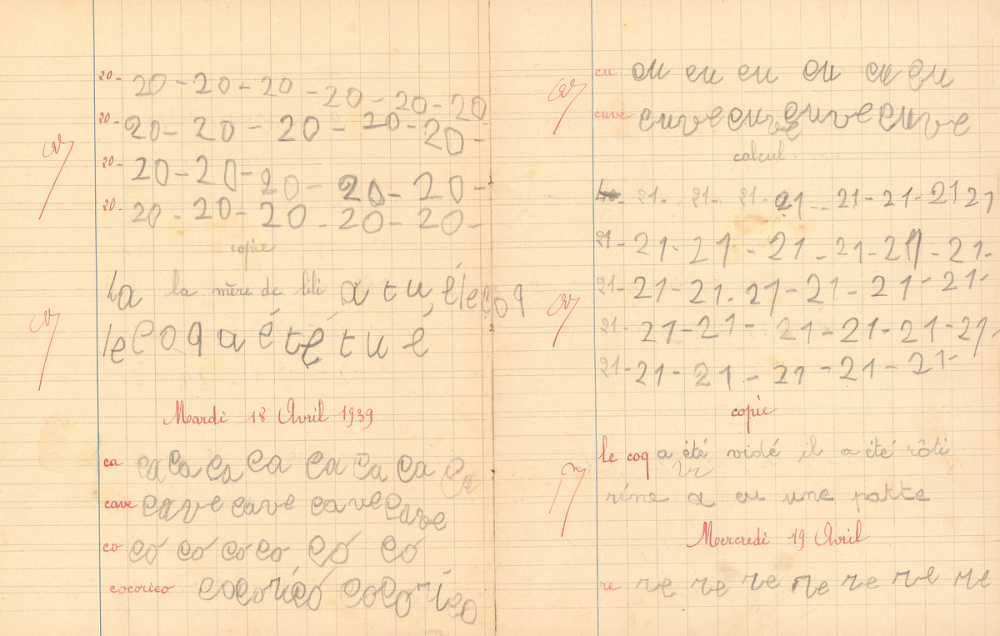 20- 20 - 20 - 20 - 20 - 20 - 20
20- 20 - 20 - 20 - 20 - 20 -
20- 20 - 20 - 20 - 20 - 20 -
20- 20 - 20 - 20 - 20 - 20 -
copie
la la mère de lili a tué le coq
le coq a été tué
Mardi 18 Avril 1939
ca ca ca ca ca ca ca ca ca
cave cave cave cave cave
co co co co co co co
cocorico cocorico cocorico
cu cu cu cu cu cu cu
cuve cuve cuve cuve cuve
calcul
21 - 21 - 21 - 21 - 21 - 21 - 21 21
21 - 21 - 21 - 21 - 21 - 21 - 21 -
21 - 21 - 21 - 21 - 21 - 21 - 21 -
21 - 21 - 21 - 21 - 21 - 21 - 21 -
21 - 21 - 21 - 21 - 21 - 21 -
copie
le coq a été vidé il a été rôti
a eu une patte
Mercredi 19 Avril
re re re re re re re re